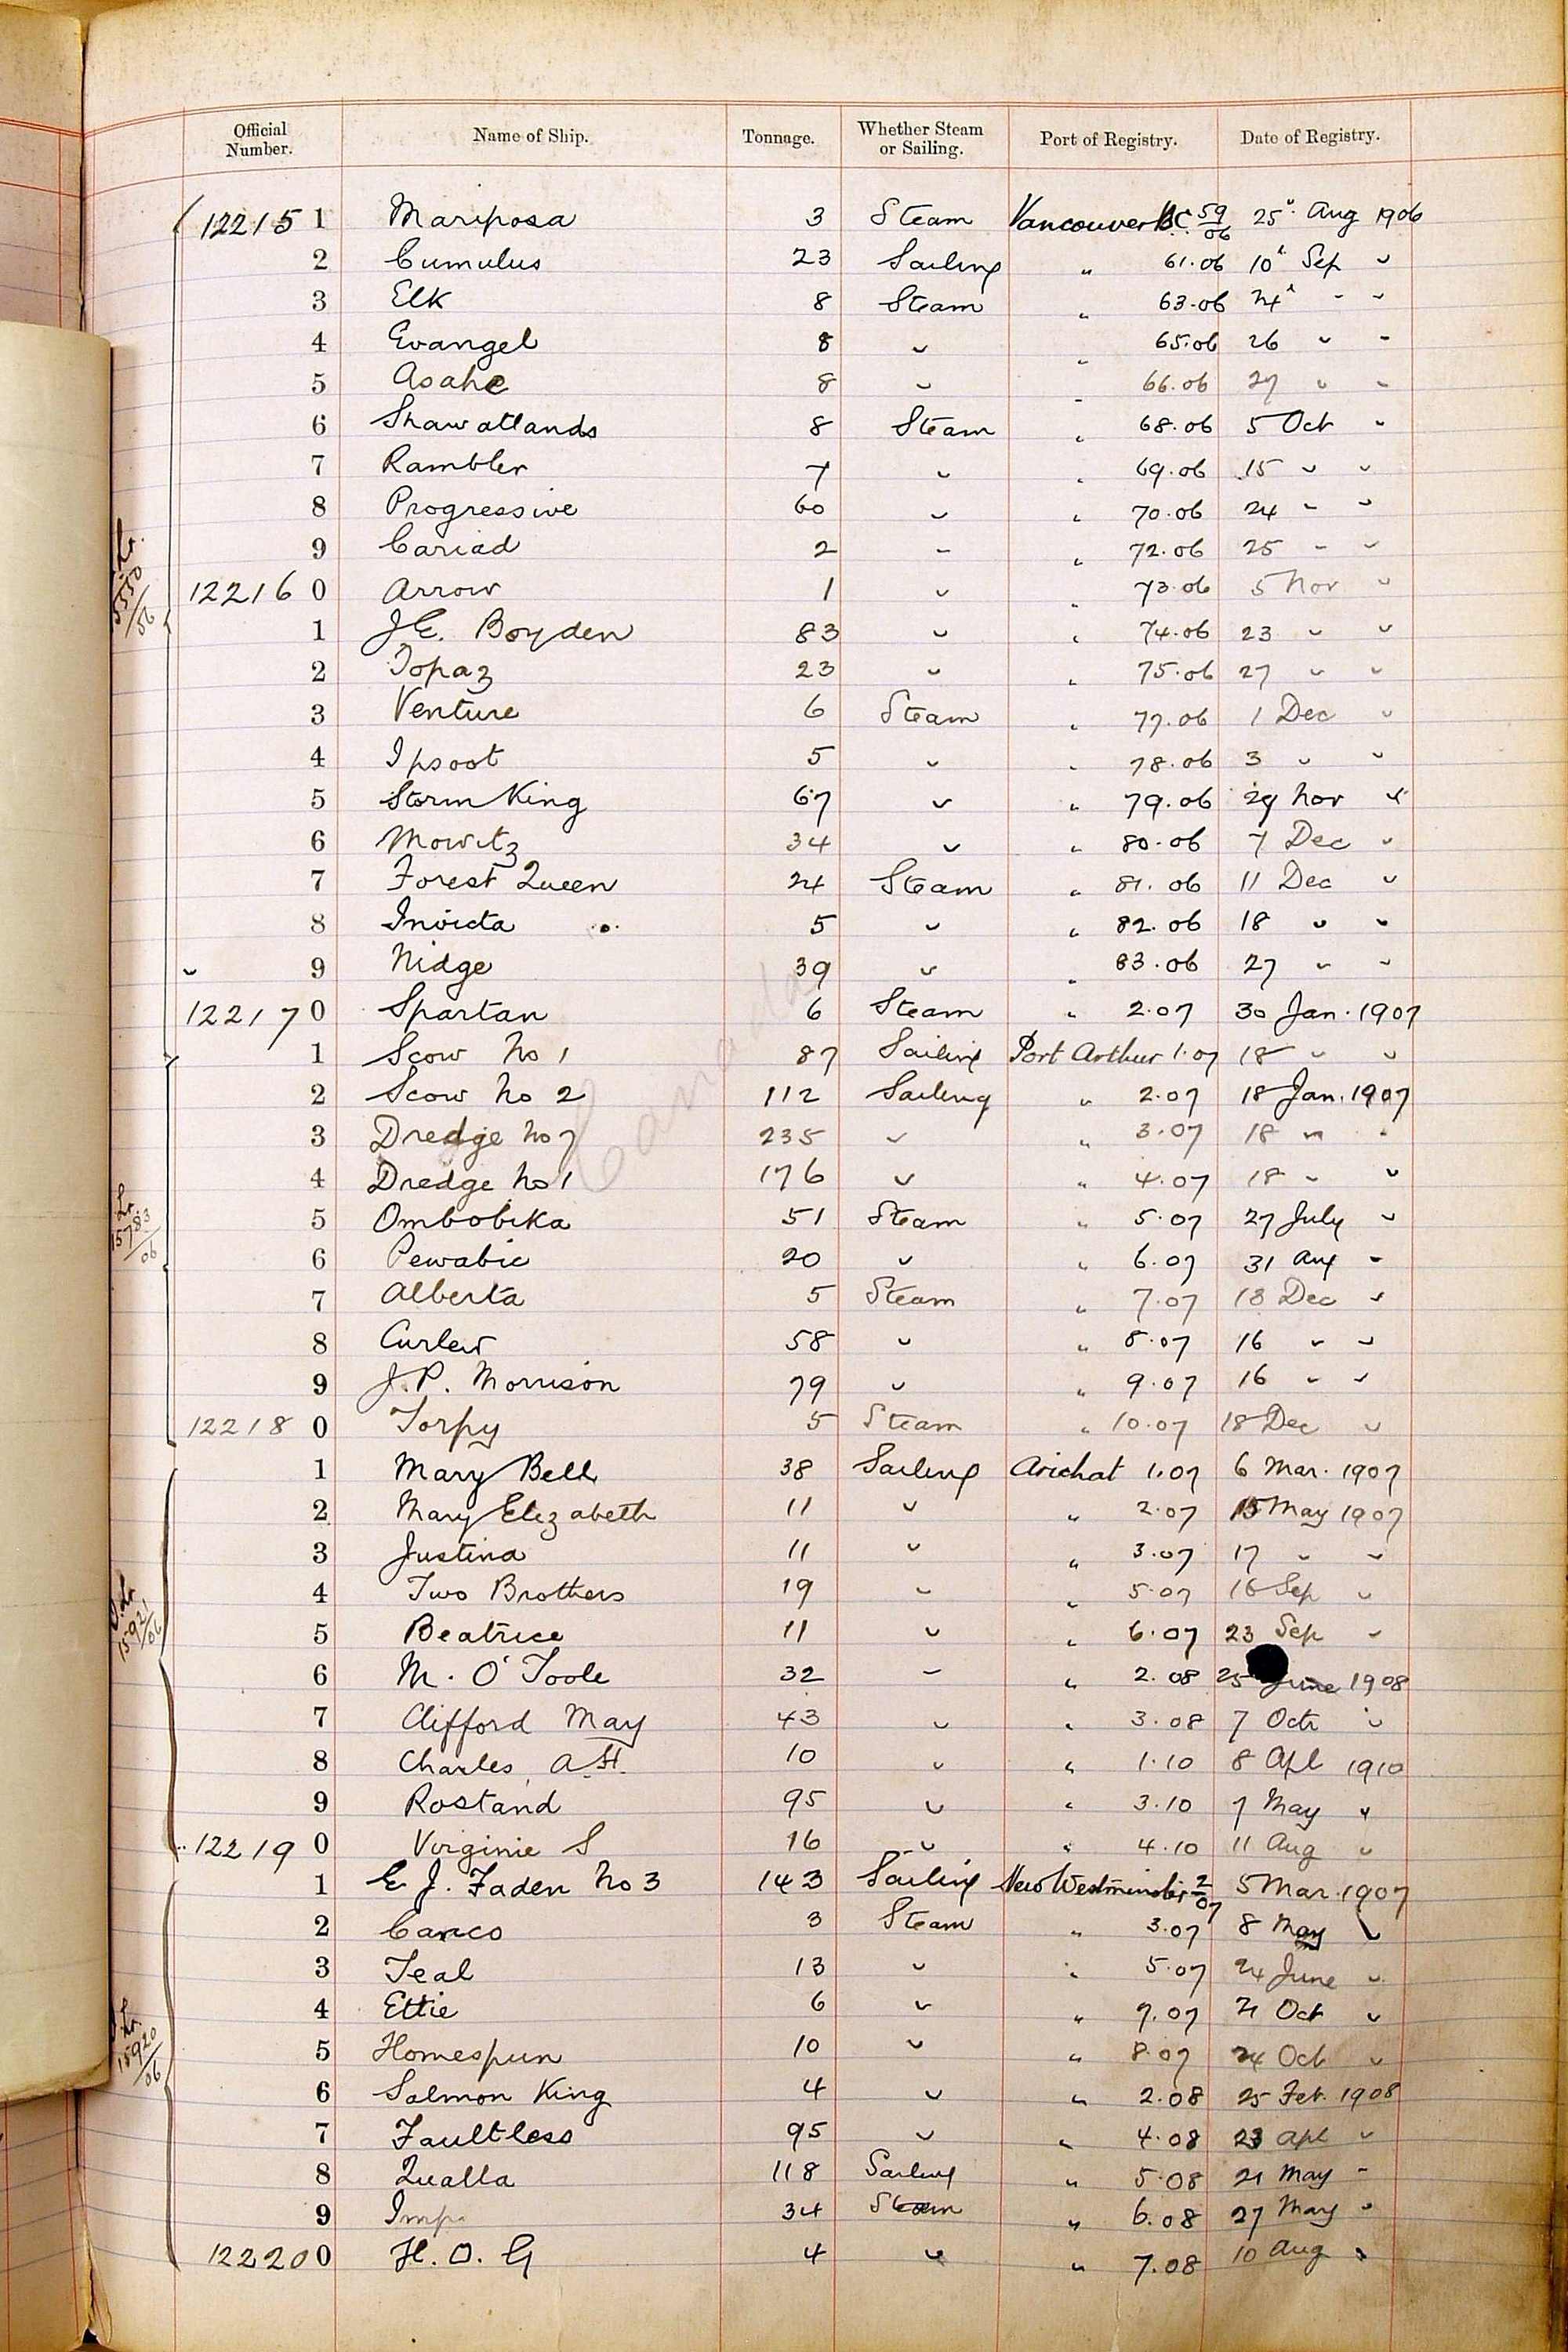 Official Number. Name of Ship. Tonnage. Whether Steam or Sailing. Port of Registry. Date of Registry.
12215 1 Mariposa 3 Steam Vancouver BC 59/06 25 Aug 1906
2 Cumulus 23 Sailing " 61.06 10 Sep "
3 Elk 8 Steam " 63.06 24 " "
4 Evangel 8 " " 65.06 26 " "
5 Asahe 8 " " 66.06 27 " "
6 Shawatlands 8 Steam " 68.06 5 Oct "
7 Rambler 7 " " 69.06 15 " "
8 Progressive 60 " " 70.06 24 " "
9 Cariad 2 " " 72.06 25 " "
12216 0 Arrow 1 " " 73.06 5 Nov "
1 J.E. Boyden 83 " " 74.06 23 " "
2 Topaz 23 " " 75.06 27 " "
3 Venture 6 Steam " 77.06 1 Dec "
4 Ipsoot 5 " " 78.06 3 " "
5 Storm King 67 " " 79.06 29 Nov "
6 Mowitz 34 " " 80.06 7 Dec "
7 Forest Queen 24 Steam " 81.06 11 Dec "
8 Invicta 5 " " 82.06 18 " "
" 9 Nidge 39 " " 83.06 27 " "
12217 0 Spartan 6 Steam " 2.07 30 Jan. 1907
1 Scow No 1 87 Sailing Port Arthur 1.07 18 " "
2 Scow No 2 112 Sailing " 2.07 18 Jan. 1907
3 Dredge No 7 235 " " 3.07 18 " "
4 Dredge No 1 176 " " 4.07 18 " "
5 Ombobika 51 Steam " 5.07 27 July "
6 Pewabic 20 " " 6.07 31 Aug "
7 Alberta 5 Steam " 7.07 13 Dec "
8 Curlew 58 " " 8.07 16 " "
9 J.P. Morrison 79 " " 9.07 16 " "
12218 0 Torpy 5 Steam " 10.07 18 Dec "
1 Mary Bell 38 Sailing Arichat 1.07 6 Mar. 1907
2 Mary Elizabeth 11 " " 2.07 15 May 1907
3 Justina 11 " " 3.07 17 " "
4 Two Brothers 19 " " 5.07 16 Sep "
5 Beatrice 11 " " 6.07 23 Sep "
6 M. O'Toole 32 " " 2.08 25 June 1908
7 Clifford May 43 " " 3.08 7 Octr "
8 Charles A.H. 10 " " 1.10 8 Apl 1910
9 Rostand 95 " " 3.10 7 May "
12219 0 Virginie S 16 " " 4.10 11 Aug "
1 E J. Faden No 3 143 Sailing New Westminster 2/07 5 Mar. 1907
2 Canco 3 Steam " 3.07 8 May "
3 Teal 13 " " 5.07 24 June "
4 Ettie 6 " " 7.07 21 Oct "
5 Homespun 10 " " 8.07 24 Oct "
6 Salmon King 4 " " 2.08 25 Feb. 1908
7 Faultless 95 " " 4.08 23 Apl "
8 Qualla 118 Sailing " 5.08 21 May "
9 Imp. 34 Steam " 6.08 27 May "
12220 0 H. O. G 4 " " 7.08 10 Aug "
Canada
Lr. 15783/06
15921/06
Lr. 15920/06